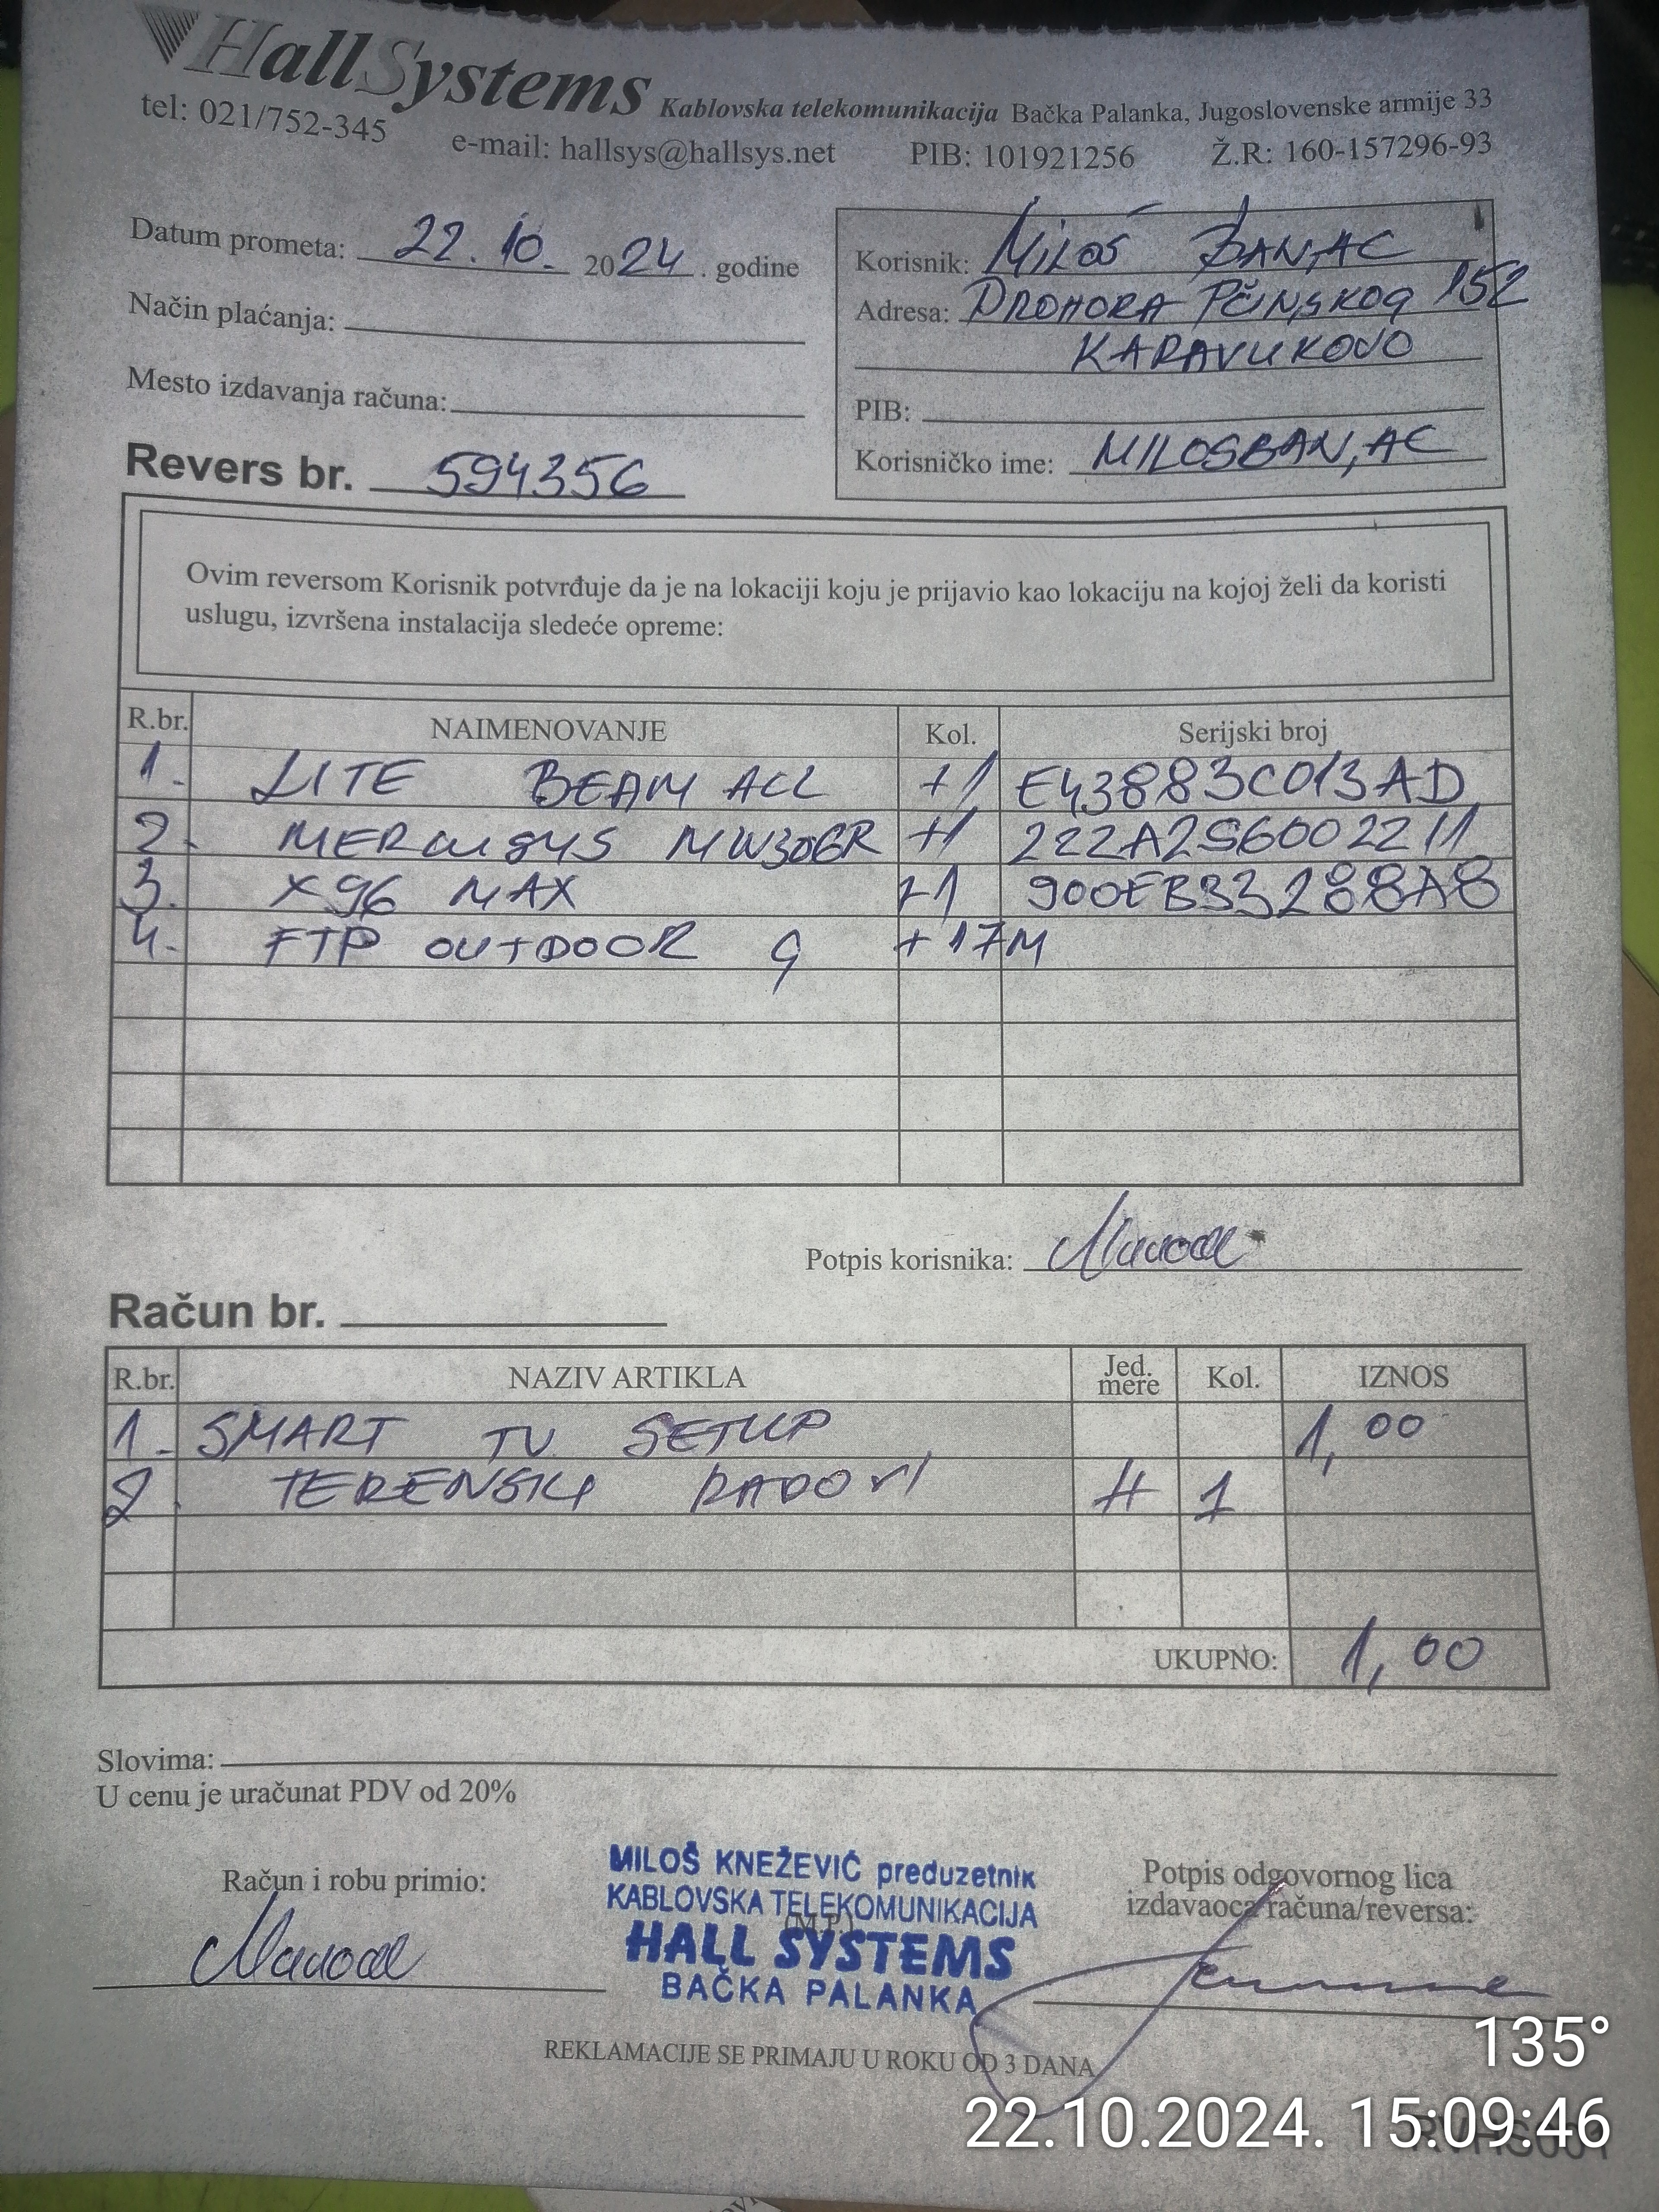 HallSystems Kablovska telekomunikacija Bačka Palanka, Jugoslovenske armije 33
tel: 021/752-345 e-mail: hallsys@hallsys.net PIB: 101921256 Ž.R: 160-157296-93
Datum prometa: 22. 10. 2024. godine
Način plaćanja:
Mesto izdavanja računa:
Revers br. 594356
Korisnik: MILOŠ BANJAC
Adresa: PROHORA PČINJSKOG 152
KARAVUKOVO
PIB:
Korisničko ime: MILOSBANJAC
Ovim reversom Korisnik potvrđuje da je na lokaciji koju je prijavio kao lokaciju na kojoj želi da koristi
uslugu, izvršena instalacija sledeće opreme:
R.br. NAIMENOVANJE Kol. Serijski broj
1. LITE BEAM ACL +1 E43883C013AD
2. MERCUSYS MW306R +1 222A2S6002211
3. X96 MAX +1 900EB33288A8
4. FTP OUTDOOR G +17M
Potpis korisnika:
Račun br.
R.br. NAZIV ARTIKLA Jed. mere Kol. IZNOS
1. SMART TV SETUP 1,00
2. TERENSKI RADOVI H 1
UKUPNO: 1,00
Slovima:
U cenu je uračunat PDV od 20%
Račun i robu primio:
MILOŠ KNEŽEVIĆ preduzetnik
KABLOVSKA TELEKOMUNIKACIJA
(M.P.)
HALL SYSTEMS
BAČKA PALANKA
Potpis odgovornog lica
izdavaoca računa/reversa:
REKLAMACIJE SE PRIMAJU U ROKU OD 3 DANA
135°
22.10.2024. 15:09:46